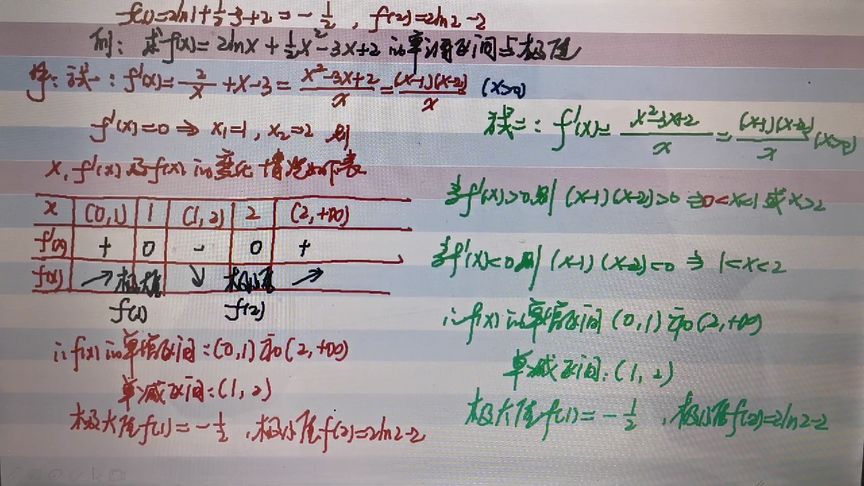 f(1)=2ln1+½-3+2=-½, f(2)=2ln2-2
例: 求f(x)=2lnx+½x²-3x+2的单调区间与极值
解: 法一: f'(x)=2/x+x-3=(x²-3x+2)/x=(x-1)(x-2)/x (x>0)
f'(x)=0⇒x₁=1, x₂=2 则
x, f'(x)及f(x)的变化情况如下表
x (0,1) 1 (1,2) 2 (2,+∞)
f'(x) + 0 - 0 +
f(x) ↗ 极大值 ↘ 极小值 ↗
f(1) f(2)
∴f(x)的单增区间:(0,1)和(2,+∞)
单减区间:(1,2)
极大值f(1)=-½, 极小值f(2)=2ln2-2
法二: f'(x)=(x²-3x+2)/x=(x-1)(x-2)/x (x>0)
当f'(x)>0则(x-1)(x-2)>0⇒0<x<1或x>2
当f'(x)<0则(x-1)(x-2)<0⇒1<x<2
∴f(x)的单增区间(0,1)和(2,+∞)
单减区间:(1,2)
极大值f(1)=-½, 极小值f(2)=2ln2-2